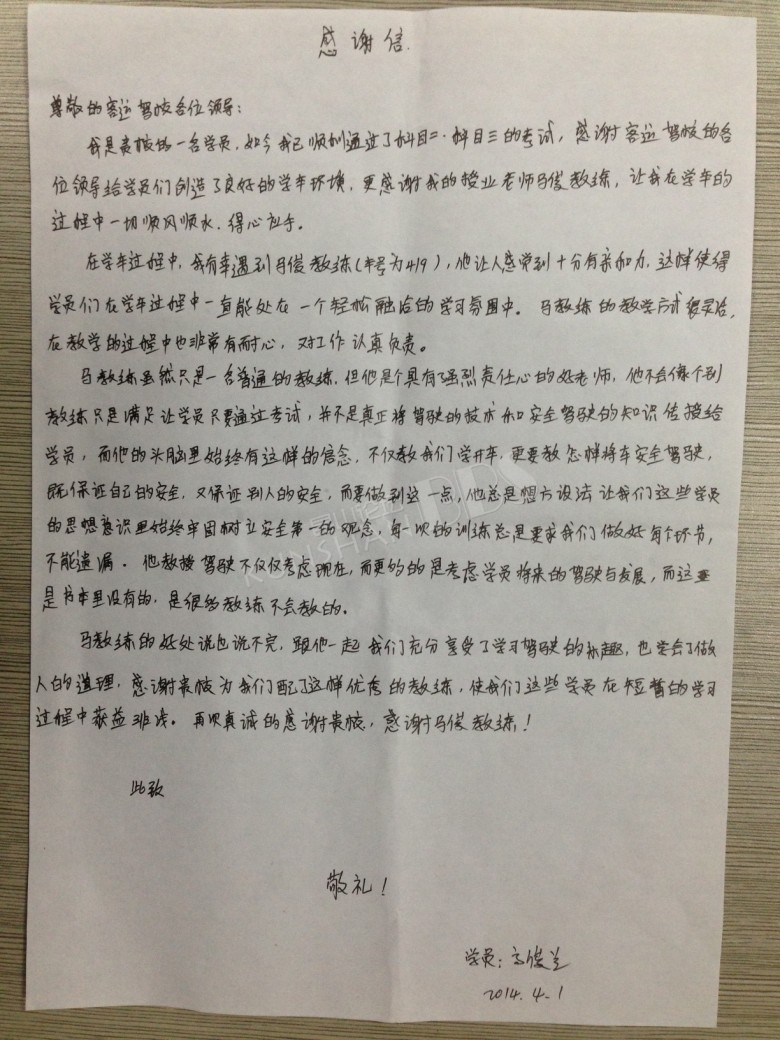 感谢信.
尊敬的客运驾校各位领导：
我是贵校的一名学员，如今我已顺利通过了科目二、科目三的考试，感谢客运驾校的各
位领导给学员们创造了良好的学车环境，更感谢我的授业老师马俊教练，让我在学车的
过程中一切顺风顺水，得心应手。
在学车过程中，我有幸遇到马俊教练(车号为419)，他让人感觉到十分有亲和力，这样使得
学员们在学车过程中一直能处在一个轻松融洽的学习氛围中。马教练的教学方式很灵活，
在教学的过程中也非常有耐心，对工作认真负责。
马教练虽然只是一名普通的教练，但他是个具有了强烈责任心的好老师，他不会像个别
教练只是满足让学员只要通过考试，并不是真正将驾驶的技术和安全驾驶的知识传授给
学员，而他的头脑里始终有这样的信念，不仅教我们学开车，更要教怎样将车安全驾驶，
既保证自己的安全，又保证别人的安全，而要做到这一点，他总是想方设法让我们这些学员
的思想意识里始终牢固树立安全第一的观念，每一次的训练总是要求我们做好每个环节，
不能遗漏。他教授驾驶不仅仅考虑现在，而更多的是考虑学员将来的驾驶与发展，而这
是书本里没有的，是很多教练不会教的。
马教练的好处说也说不完，跟他一起我们充分享受了学习驾驶的乐趣，也学会了做
人的道理，感谢贵校为我们配了这样优秀的教练，使我们这些学员在短暂的学习
过程中获益非浅。再次真诚的感谢贵校，感谢马俊教练！
此致
敬礼！
学员：高俊兰
2014.4.1